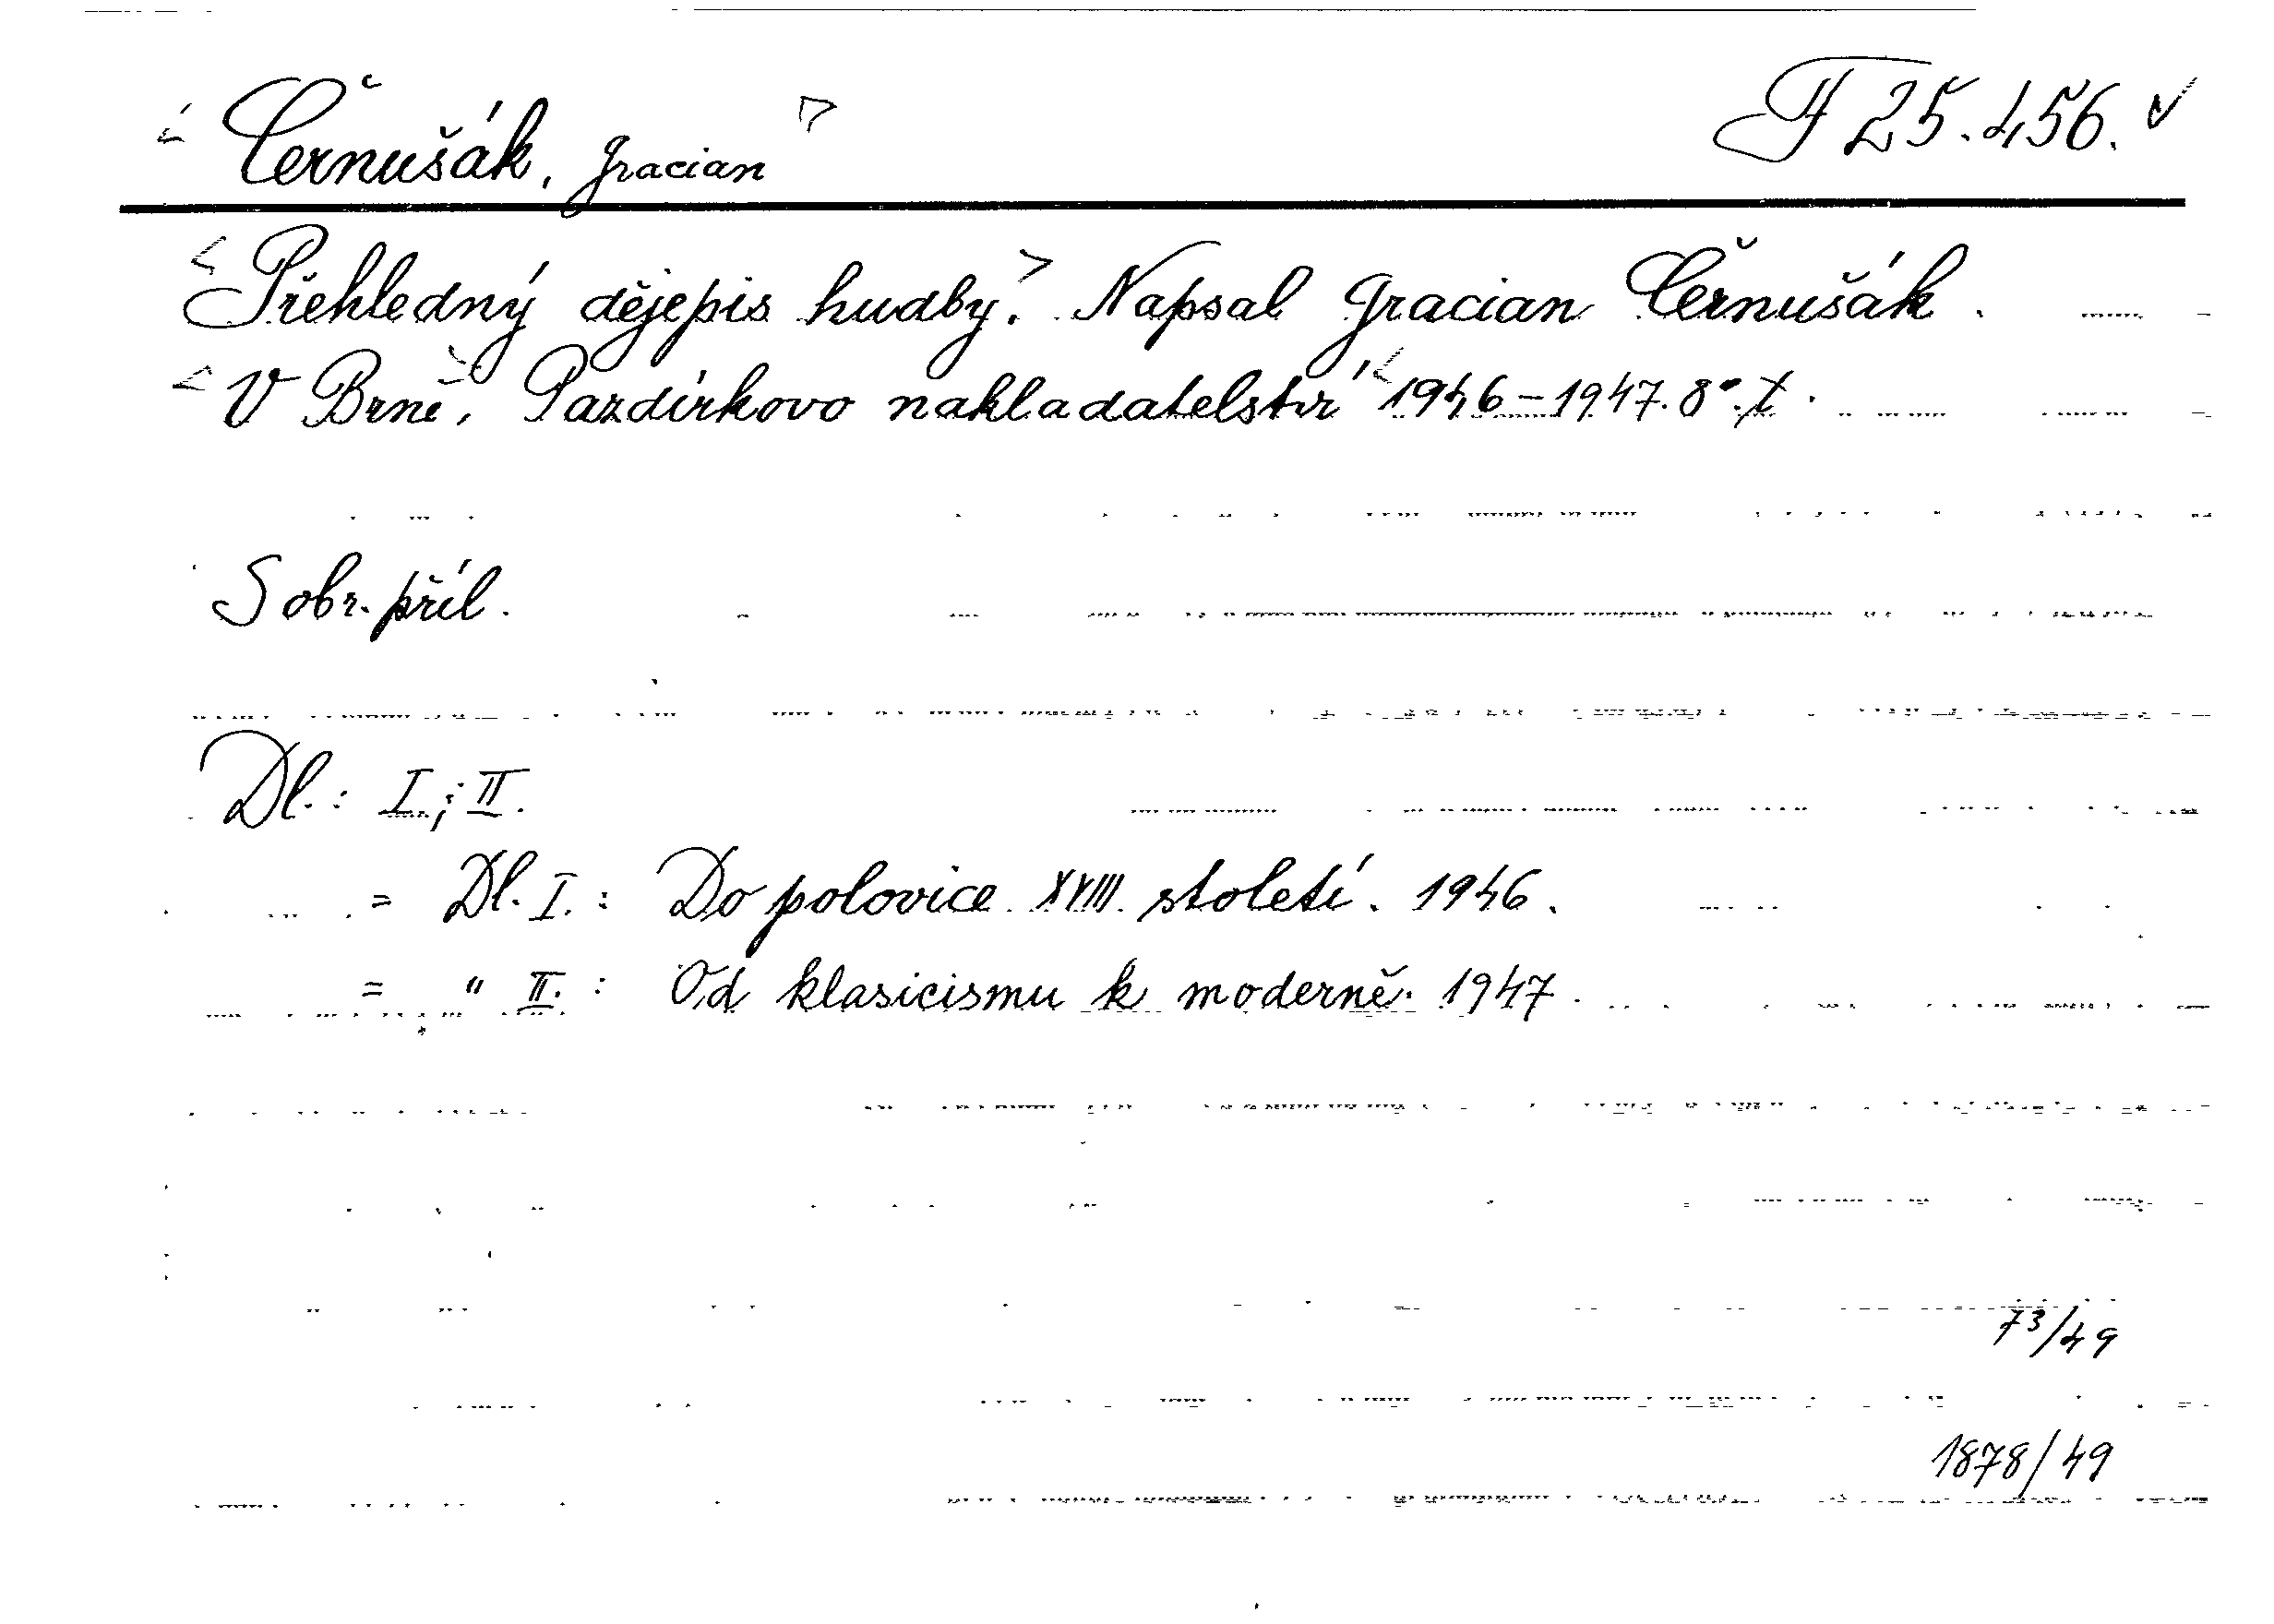 Černušák, Gracian F 25.456.
Přehledný dějepis hudby. Napsal Gracian Černušák.
V Brně, Pazdírkovo nakladatelství 1946-1947. 8°.
S obr. příl.
Dl.: I.; II.
= Dl. I.: Do polovice XVIII. století. 1946.
= " II.: Od klasicismu k moderně. 1947.
73/49
1878/49